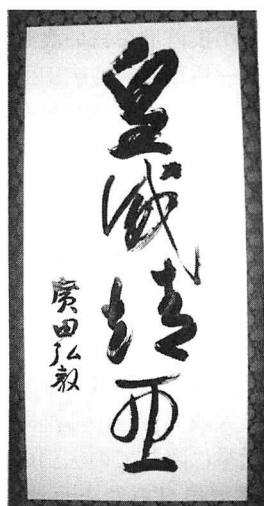 皇威靖亜
廣田弘毅